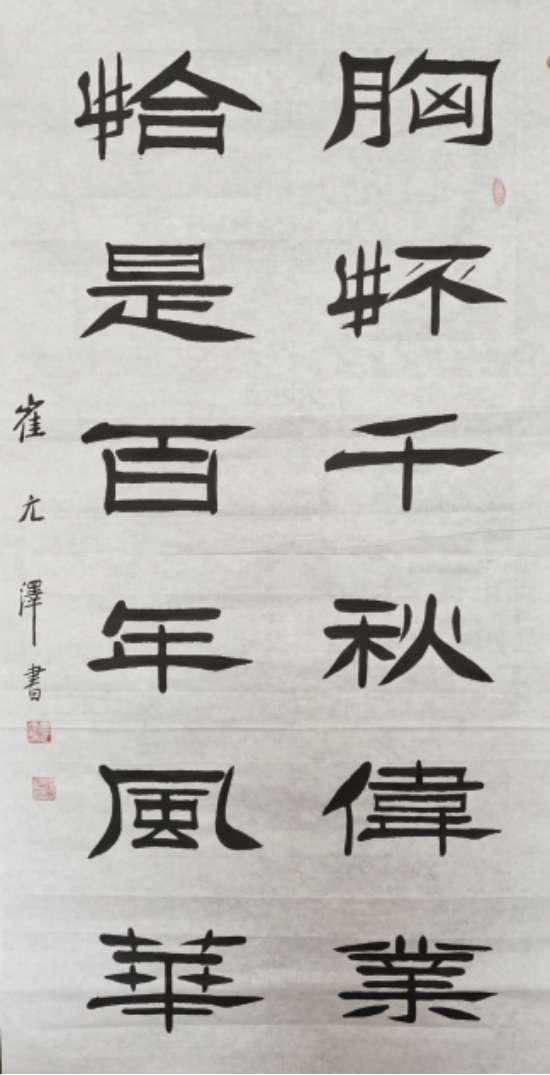 胸怀千秋偉業
恰是百年風華
崔亢澤書